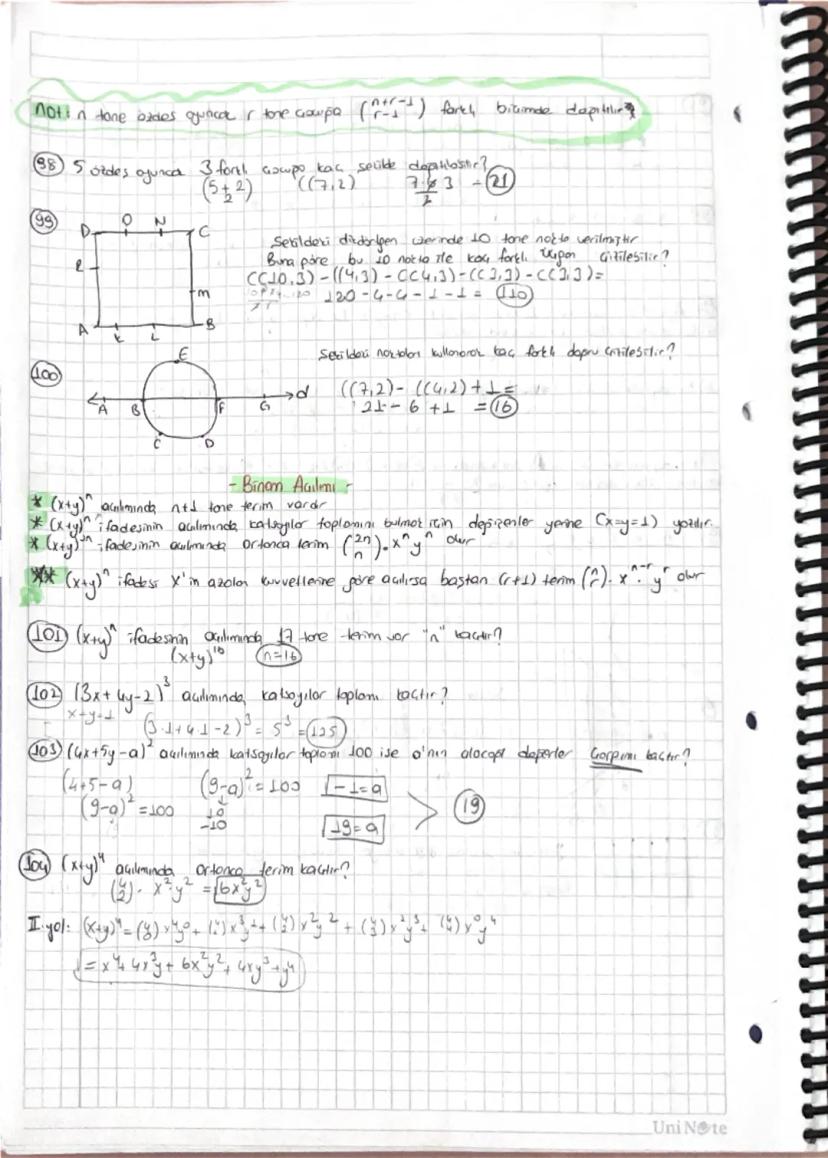 not: n tane özdeş oyuncak r tane çocuğa (n+r-1 r-1) farklı biçimde dağıtılır
98 5 özdeş oyuncak 3 farklı çocuğa kaç şekilde dağıtılabilir?
(5+2 2) C(7,2) 7.6 3 / 2 = 21
99
D O N C
R
m
A K L B
Şekildeki dikdörtgen üzerinde 10 tane nokta verilmiştir
Buna göre bu 10 nokta ile kaç farklı üçgen çizilebilir?
C(10,3) - C(4,3) - C(4,3) - C(3,3) - C(3,3) =
120 - 4 - 4 - 1 - 1 = 110
100
E
A B F G d
C D
Şekildeki noktaları kullanarak kaç farklı doğru çizilebilir?
C(7,2) - C(4,2) + 1 =
21 - 6 + 1 = 16
- Binom Açılımı -
* (x+y)ⁿ açılımında n+1 tane terim vardır
* (x+y)ⁿ ifadesinin açılımında katsayılar toplamını bulmak için değişkenler yerine (x=y=1) yazılır.
* (x+y)²ⁿ ifadesinin açılımında ortanca terim (2n n).xⁿyⁿ olur
** (x+y)ⁿ ifadesi x'in azalan kuvvetlerine göre açılırsa baştan (r+1) terim (n r).xⁿ⁻ʳ.yʳ olur
101 (x+y)ⁿ ifadesinin açılımında 17 tane terim var "n" kaçtır?
(x+y)¹⁶ n=16
102 (3x+4y-2)³ açılımında katsayılar toplamı kaçtır?
x=y=1 (3.1+4.1-2)³ = 5³ = 125
103 (4x+5y-a)² açılımında katsayılar toplamı 100 ise a'nın alacağı değerler çarpımı kaçtır?
(4+5-a) (9-a)² = 100 -1=a
(9-a)² = 100 10
-10 19=a 19
104 (x+y)⁴ açılımında ortanca terim kaçtır?
(4 2). x².y² = 6x²y²
II.yol: (x+y)⁴ = (4 0)x⁴y⁰ + (4 1)x³y¹ + (4 2)x²y² + (4 3)x¹y³ + (4 4)x⁰y⁴
= x⁴+4x³y+6x²y²+4xy³+y⁴
UniNote